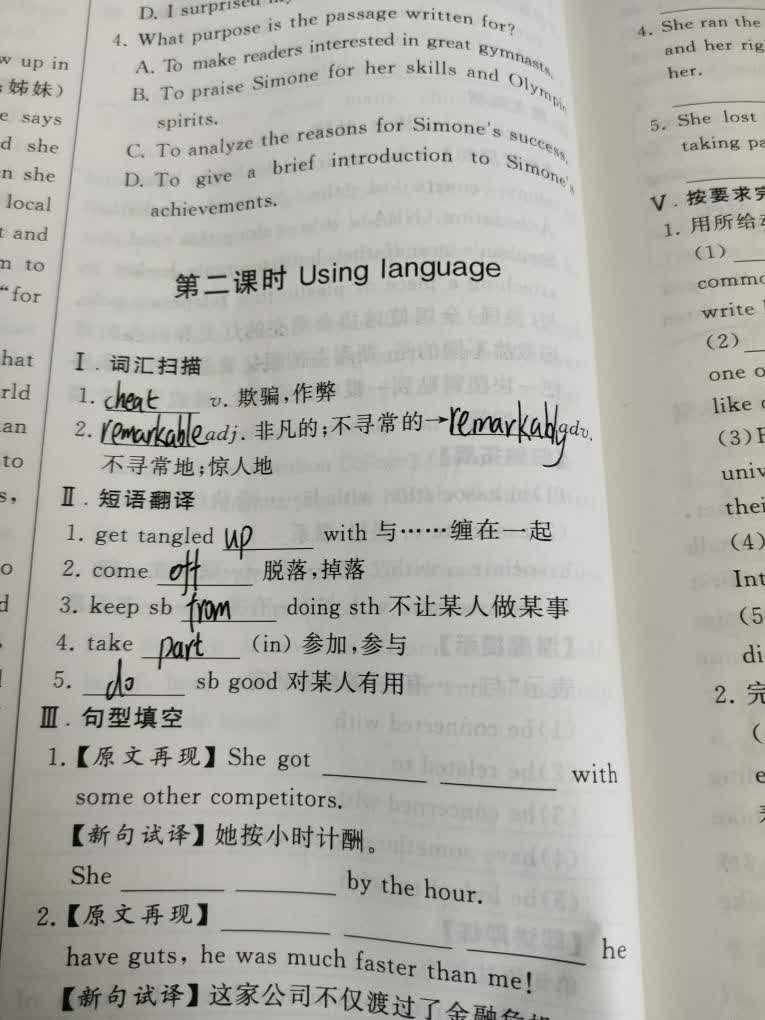 w up in
姊妹）
e says
d she
n she
local
t and
m to
“for
hat
rld
an
to
s,
o
d
D. I surprised
4. What purpose is the passage written for?
A. To make readers interested in great gymnasts.
B. To praise Simone for her skills and Olympic
spirits.
C. To analyze the reasons for Simone's success.
D. To give a brief introduction to Simone's
achievements.
第二课时 Using language
Ⅰ. 词汇扫描
1. cheat v. 欺骗,作弊
2. remarkable adj. 非凡的;不寻常的→remarkably adv.
不寻常地;惊人地
Ⅱ. 短语翻译
1. get tangled up with 与……缠在一起
2. come off 脱落,掉落
3. keep sb from doing sth 不让某人做某事
4. take part (in) 参加,参与
5. do sb good 对某人有用
Ⅲ. 句型填空
1.【原文再现】She got ________ ________ with
some other competitors.
【新句试译】她按小时计酬。
She ________ ________ by the hour.
2.【原文再现】________ ________ ________ he
have guts, he was much faster than me!
【新句试译】这家公司不仅渡过了金融危机
4. She ran the
and her rig
her.
5. She lost
taking pa
Ⅴ. 按要求完
1. 用所给
(1)
commo
write
(2)
one o
like
(3)
univ
thei
(4)
Int
(5
di
2. 完
(
e